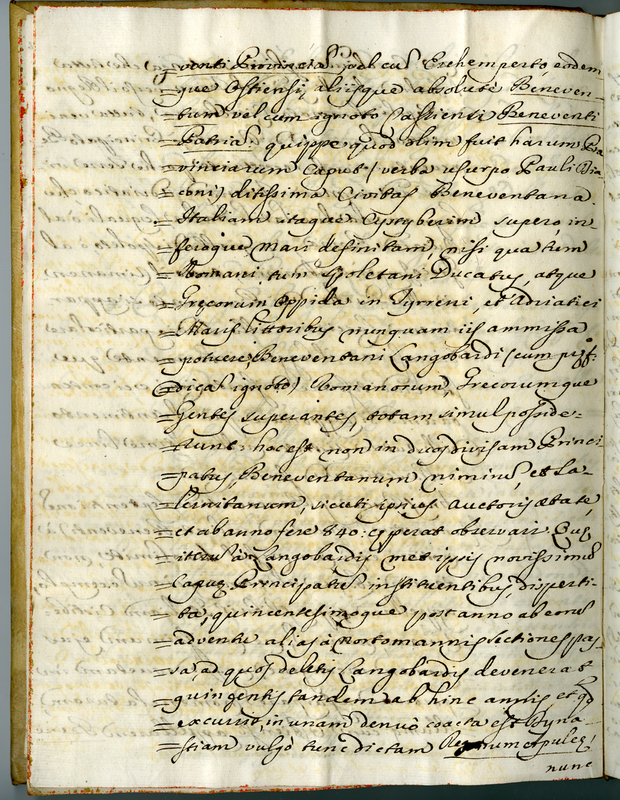 =venti Provincia vel cũ Erchemperto, eodem
que Ostiensi, aliisque absolute Beneven-
=tum vel cum ignoto Cassienti Beneventi
=Patria: quippe quod olim fuit harum
=vinciarum Caput (verba usurpo Pauli Dia
=coni) ditissima Civitas Beneventana.
=Italiam itaque Cystyberim supero, in-
=feroque Mari definitam, nisi qua tum
=Romani tum Spoletani Ducatus, atque
=Grecorum Oppida in Tyrreni, et Adriatici
=Maris littoribus nunquam iis ammissa
=potuere, Beneventani Langobardi (cum
=dicas ignoto) Romanorum, Grecorumque
=Gentes superantes, totam simul posside-
=runt: hoc est, non in duos divisam Princi
=patus, Beneventanum nimirũ, et Sa-
=lernitanum, sicuti ipsius Auctoris ætate,
=et ab anno fere 840: cęperat observari. Quę
=iterũ a Langobardis met ipsis novissimũ
=Capuę Principatũ instituentibus, disperti-
=ta, quincentesimoque post anno ab eorũ
=adventu alias à Nortomannis sectiones pas
=sa, ad quos deletis Langobardis devenerat
=quingentis tandem ab hinc annis, et qd
=excurrit, in unam denuò coacta est Dyna
=stiam vulgò tunc dictam Regnum Apulię,
nunc